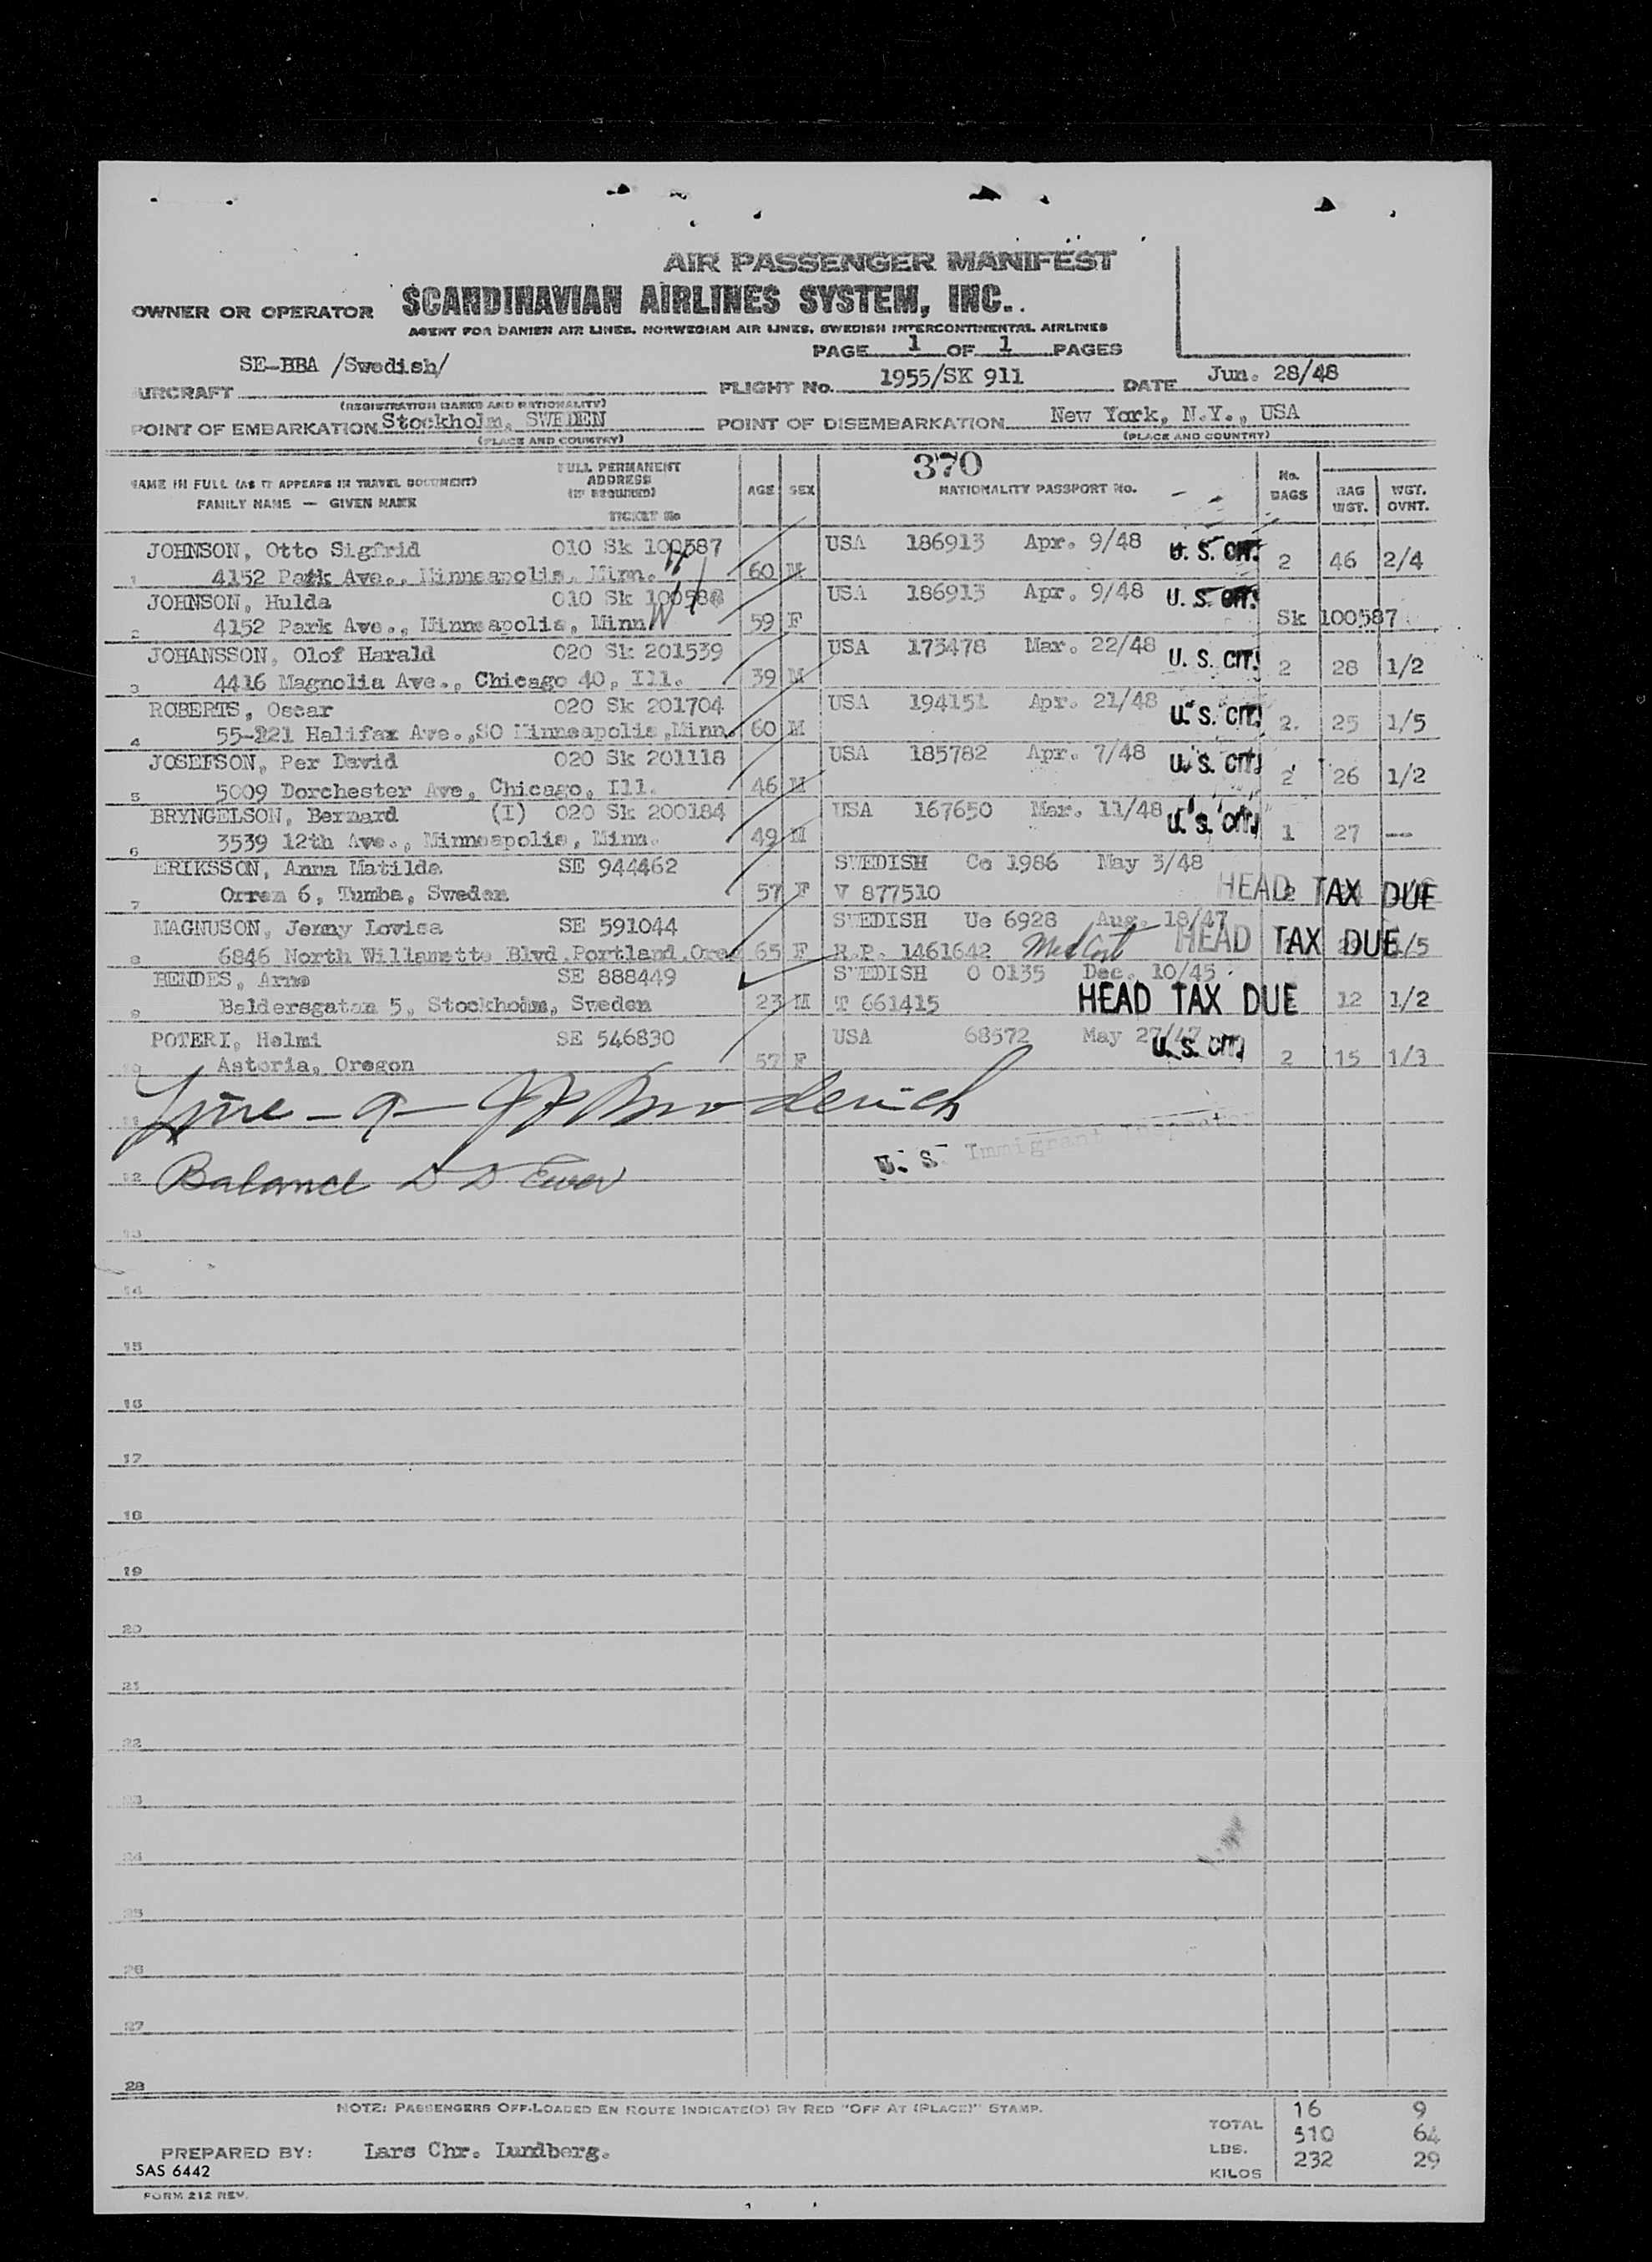 AIR PASSENGER MANIFEST
OWNER OR OPERATOR SCANDINAVIAN AIRLINES SYSTEM, INC.
AGENT FOR DANISH AIR LINES, NORWEGIAN AIR LINES, SWEDISH INTERCONTINENTAL AIRLINES
PAGE 1 OF 1 PAGES
AIRCRAFT SE-BBA /Swedish/ FLIGHT No. 1955/SK 911 DATE Jun. 28/48
(REGISTRATION MARKS AND NATIONALITY)
POINT OF EMBARKATION Stockholm, SWEDEN POINT OF DISEMBARKATION New York, N.Y., USA
(PLACE AND COUNTRY) (PLACE AND COUNTRY)
370
NAME IN FULL (AS IT APPEARS IN TRAVEL DOCUMENT) FULL PERMANENT ADDRESS (IF REQUIRED) AGE SEX NATIONALITY PASSPORT No. No. BAGS BAG WGT. WGT. OVNT.
FAMILY NAME — GIVEN NAME TICKET No
JOHNSON, Otto Sigfrid 010 Sk 100587 USA 186913 Apr. 9/48 U. S. CIT.
1 4152 Park Ave., Minneapolis, Minn. 60 M 2 46 2/4
JOHNSON, Hulda 010 Sk 100588 USA 186913 Apr. 9/48 U. S. CIT.
2 4152 Park Ave., Minneapolis, Minn 59 F Sk 100587
JOHANSSON, Olof Harald 020 Sk 201539 USA 173478 Mar. 22/48 U. S. CIT.
3 4416 Magnolia Ave., Chicago 40, Ill. 39 M 2 28 1/2
ROBERTS, Oscar 020 Sk 201704 USA 194151 Apr. 21/48 U. S. CIT.
4 55-221 Halifax Ave.,SO Minneapolis,Minn. 60 M 2 25 1/5
JOSEFSON, Per David 020 Sk 201118 USA 185782 Apr. 7/48 U. S. CIT.
5 5009 Dorchester Ave, Chicago, Ill. 46 M 2 26 1/2
BRYNGELSON, Bernard (I) 020 Sk 200184 USA 167650 Mar. 11/48 U. S. CIT.
6 3539 12th Ave., Minneapolis, Minn. 49 M 1 27 --
ERIKSSON, Anna Matilda SE 944462 SWEDISH Ce 1986 May 3/48
7 Orren 6, Tumba, Sweden 57 F V 877510 HEAD TAX DUE
MAGNUSON, Jenny Lovisa SE 591044 SWEDISH Ue 6928 Aug. 18/47
8 6846 North Willamette Blvd.Portland.Ore. 65 F R.P. 1461642 Med Cert HEAD TAX DUE /5
HENDES, Arne SE 888449 SWEDISH O 0135 Dec. 10/45
9 Baldersgatan 5, Stockholm, Sweden 23 M T 661415 HEAD TAX DUE 12 1/2
POTERI, Helmi SE 546830 USA 68572 May 27/47 U. S. CIT.
10 Astoria, Oregon 57 F 2 15 1/3
11 Broderich
U. S. Immigrant Inspector
12 Balance
13
14
15
16
17
18
19
20
21
22
23
24
25
26
27
28
NOTE: PASSENGERS OFF-LOADED EN ROUTE INDICATE(D) BY RED "OFF AT (PLACE)" STAMP.
TOTAL 16 9
LBS. 510 64
KILOS 232 29
PREPARED BY: Lars Chr. Lundberg.
SAS 6442
FORM 212 REV.